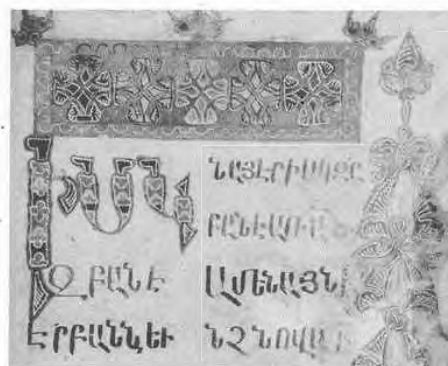 ԻՍԿ
ԶԲԱՆԷ
ԷՐԲԱՆՆԵՒ
ՆԱՅԷՐԻՍԿԶ
ԲԱՆԷԱՌԱԾ
ԱՄԵՆԱՅՆԻ
ՆՉՆՈՎԱՒ